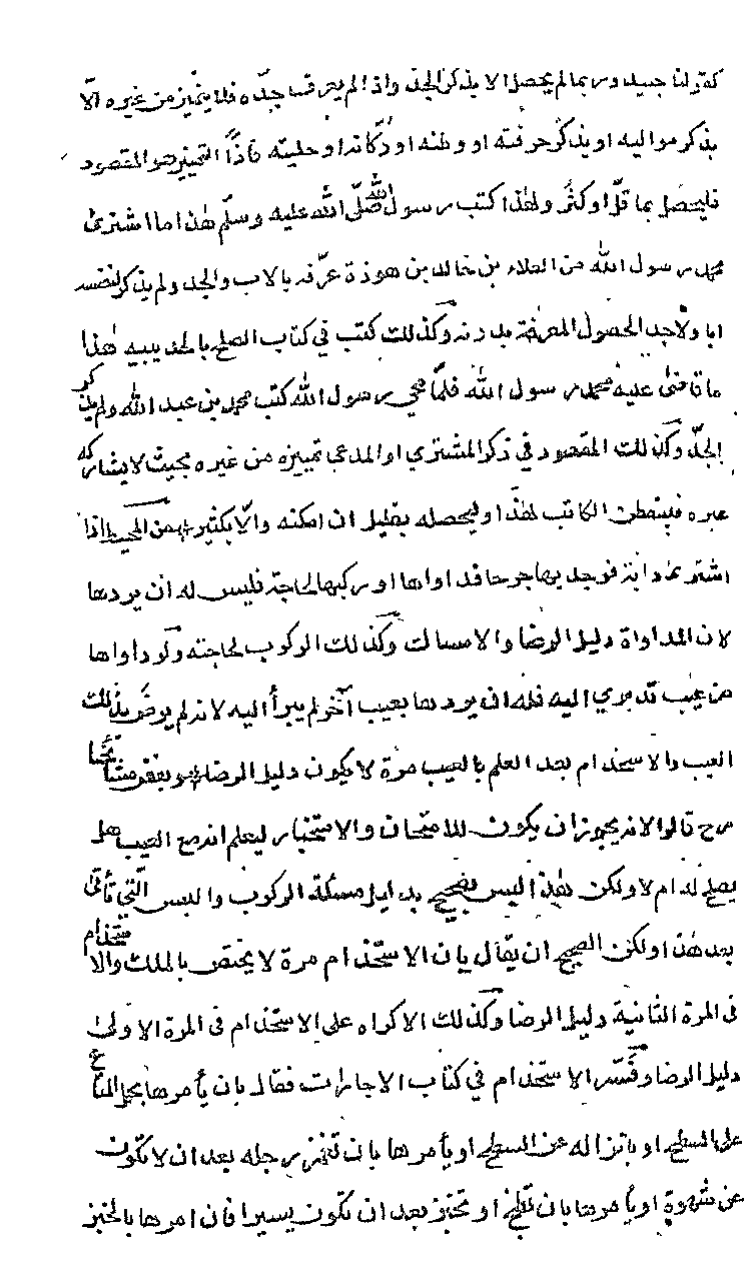 كقولنا جبيد وربما لم يحصل الا بذكر الجد واذا لم يعرف جده فلا يتميز من غيره الّا
بذكر مواليه او بذكر حرفته او وطنه او دكانه او حليته فاذًا التمييز هو المقصود
فليحصل بما قلّ او كثُر ولهٰذا كتب رسول اللّٰه صلّى اللّٰه عليه وسلّم هٰذا ما اشترىٰ
محمد رسول اللّٰه من العلاء بن خالد بن هوذة عرّفه بالاب والجد ولم يذكر لنفسه
ابا ولا جد الحصول المعرفة بدونه وكذلك كتب في كتاب الصلح بالحديبيه هٰذا
ما قاضىٰ عليه محمد رسول اللّٰه فلمّا محي رسول اللّٰه كتب محمد بن عبد اللّٰه ولم يذكر
الجدّ وكذلك المقصود في ذكر المشتري او المدعى تمييزه من غيره بحيث لا يشاركه
غيره فليتفطن الكاتب لهٰذا وليحصله بقليل ان امكنه والّا بكثير من المحيط اذا
اشترىٰ دابة فوجد بها جرحا فداواها او ركبها لحاجة فليس له ان يردها
لان المداواة دليل الرضا والامساك وكذلك الركوب لحاجته ولو داواها
من عيب قد بري اليه فله ان يردها بعيب آخر لم يبرأ اليه لانه لم يرضَ بذٰلك
العيب والاستخدام بعد العلم بالعيب مرة لا يكون دليل الرضا
رح قالوا لانه يجوز ان يكون للامتحان والاختبار ليعلم انه مع العيب هل
يصلح له ام لا ولكن هٰذا ليس بصحيح بدليل مسئلة الركوب واللبس الّتي تأتىٰ
بعد هٰذا ولكن الصحيح ان يقال بان الاستخدام مرة لا يختص بالملك والاستخدام
فى المرة الثانية دليل الرضا وكذلك الاكراه على الاستخدام فى المرة الاولىٰ
دليل الرضا وفسّر الاستخدام في كتاب الاجارات فقال بان يأمرها بحمل المتاع
على السطح او بانزاله عن السطح او يأمرها بان تغمز رجله بعد ان لا تكون
عن شهوةٍ او يأمرها بان تطبخ او تخبز بعد ان تكون يسيرا فان امرها بالخبز